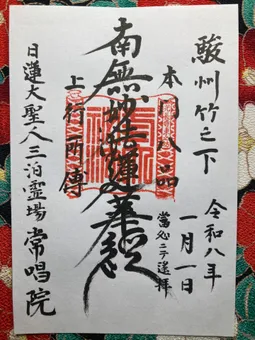 駿州竹之下
令和八年
一月一日
當処ニテ遥拝
本門八品
南無妙法蓮華経
上行所傳
日蓮大聖人三泊霊場 常唱院